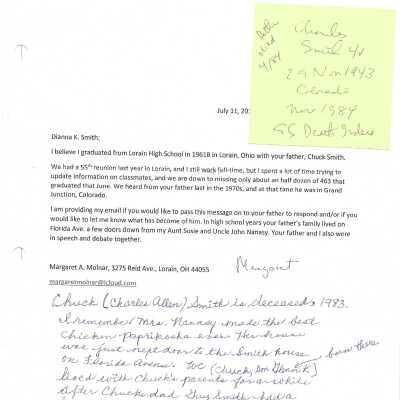 Charles
Smith
29 Nov 1943
Colorado
Nov 1984
SS Death Index
4/84
July 11, 20
Dianna K. Smith:
I believe I graduated from Lorain High School in 1961B in Lorain, Ohio with your father, Chuck Smith.
We had a 55th reunion last year in Lorain, and I still work full-time, but I spent a lot of time trying to
update information on classmates, and we are down to missing only about an half dozen of 463 that
graduated that June. We heard from your father last in the 1970s, and at that time he was in Grand
Junction, Colorado.
I am providing my email if you would like to pass this message on to your father to respond and/or if you
would like to let me know what has become of him. In high school years your father's family lived on
Florida Ave. a few doors down from my Aunt Susie and Uncle John Nanasy. Your father and I also were
in speech and debate together.
Margaret
Margaret A. Molnar, 3275 Reid Ave., Lorain, OH 44055
margaretmolnar@icloud.com
Chuck (Charles Allen) Smith is deceased, 1983.
I remember Mrs. Nanasy made the best
chicken paprikosha ever. Her house
was just next door to the Smith house
on Florida Avenue. We (Chuck, born there
lived with Chuck's parents for a while
after Chuck's dad Guy Smith had a